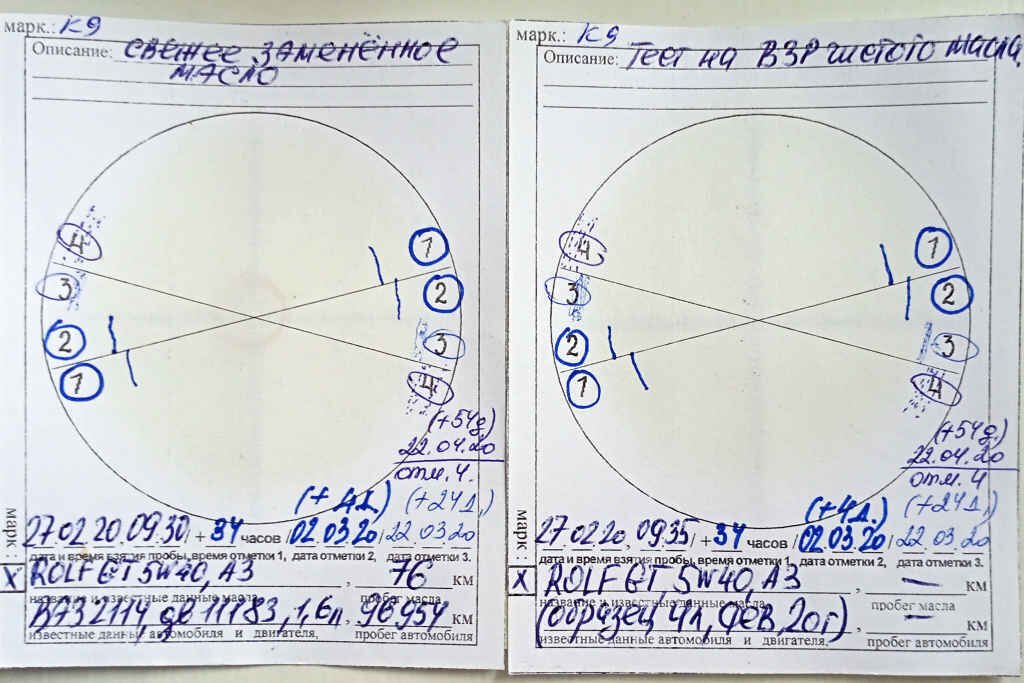 марк.: К9
Описание: СВЕЖЕЕ ЗАМЕНЁННОЕ
МАСЛО
4
1
3
2
2
3
1
4
(+54д)
22.04.20
отм.4.
(+4д.) (+24д.)
27.02.20.09.30/ + 34 часов /02.03.20/22.03.20
дата и время взятия пробы, время отметки 1, дата отметки 2, дата отметки 3.
марк.:
X ROLF GT, 5W40, A3, 76 км
название и известные данные масла, пробег масла
ВАЗ 2114, дв 11183, 1,6л, 96954 км
известные данные автомобиля и двигателя, пробег автомобиля
марк.: К9
Описание: Тест на ВЗР чистого масла,
4
1
3
2
2
3
1
4
(+54д)
22.04.20
отм.4
(+4д.) (+24д.)
27.02.20, 09.35/ + 34 часов /02.03.20/22.03.20
дата и время взятия пробы, время отметки 1, дата отметки 2, дата отметки 3.
марк.:
X ROLF GT, 5W40, A3, — км
название и известные данные масла, пробег масла
(образец 4л, фев, 20г), — км
известные данные автомобиля и двигателя, пробег автомобиля